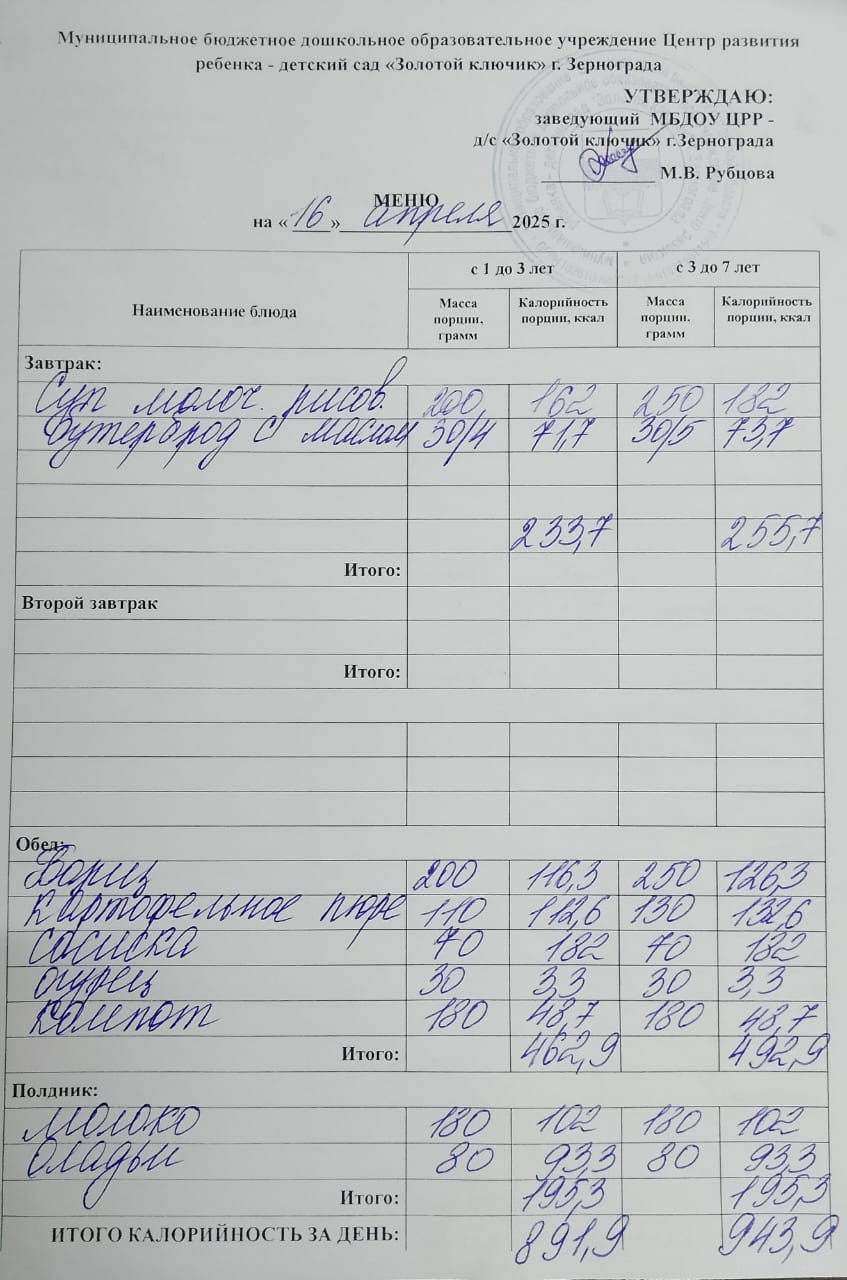 Муниципальное бюджетное дошкольное образовательное учреждение Центр развития
ребенка - детский сад «Золотой ключик» г. Зернограда
УТВЕРЖДАЮ:
заведующий МБДОУ ЦРР -
д/с «Золотой ключик» г.Зернограда
М.В. Рубцова
МЕНЮ
на « 16 » апреля 2025 г.
Наименование блюда с 1 до 3 лет с 3 до 7 лет
Масса порции, грамм Калорийность порции, ккал Масса порции, грамм Калорийность порции, ккал
Завтрак:
Суп молоч. рисов. 200 162 250 182
Бутерброд с маслом 30/4 71,7 30/5 73,7
233,7 255,7
Итого:
Второй завтрак
Итого:
Обед:
Борщ 200 116,3 250 126,3
Картофельное пюре 110 112,6 130 132,6
Сосиска 70 182 70 182
Огурец 30 3,3 30 3,3
Компот 180 48,7 180 48,7
Итого: 462,9 492,9
Полдник:
Молоко 180 102 180 102
Оладьи 80 93,3 80 93,3
Итого: 195,3 195,3
ИТОГО КАЛОРИЙНОСТЬ ЗА ДЕНЬ: 891,9 943,9